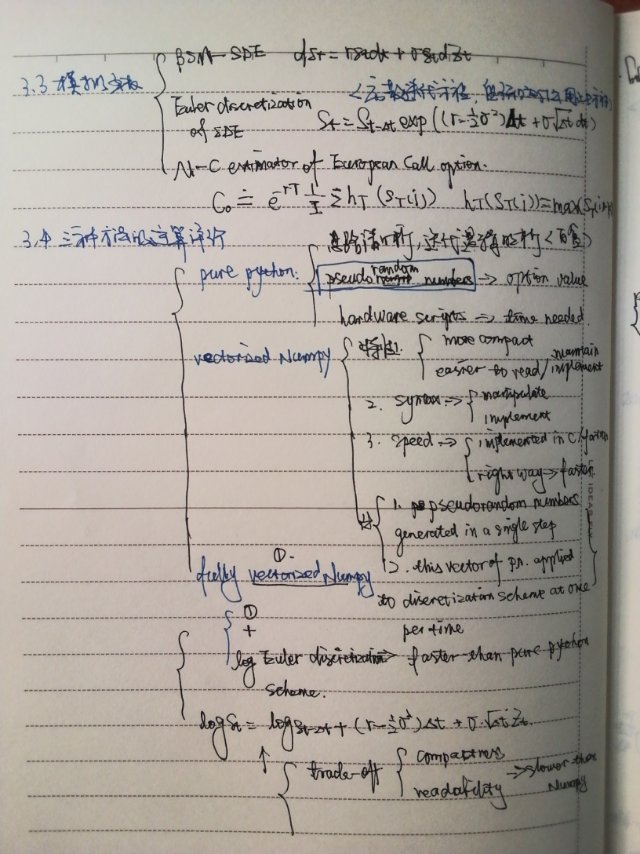 BSM-SDE dSt = rStdt + σStdZt
3.3 模拟
Euler discretization
of SDE St = St-Δt exp((r-½σ²)Δt + σ√Δt zt)
M-C estimator of European Call option.
C₀ ≐ e^-rT 1/I Σ hT(ST(i)) hT(ST(i)) = max(ST(i)
3.4 三种方法
pure python:
pseudorandom numbers → option value
hardware scripts → time needed.
vectorized Numpy
more compact
easier to read/maintain/implement
2. syntax → manipulate
implement
3. speed → implemented in C/Fortran
right way → faster
1. pseudorandom numbers
generated in a single step
①
fully vectorized Numpy
2. this vector of pn. applied
to discretization scheme at one
per time
①
+
log Euler discretization → faster than pure python
scheme.
logSt = logSt-Δt + (r-½σ²)Δt + σ√Δt Zt.
↑
trade-off
compactness
readability → slower than
Numpy